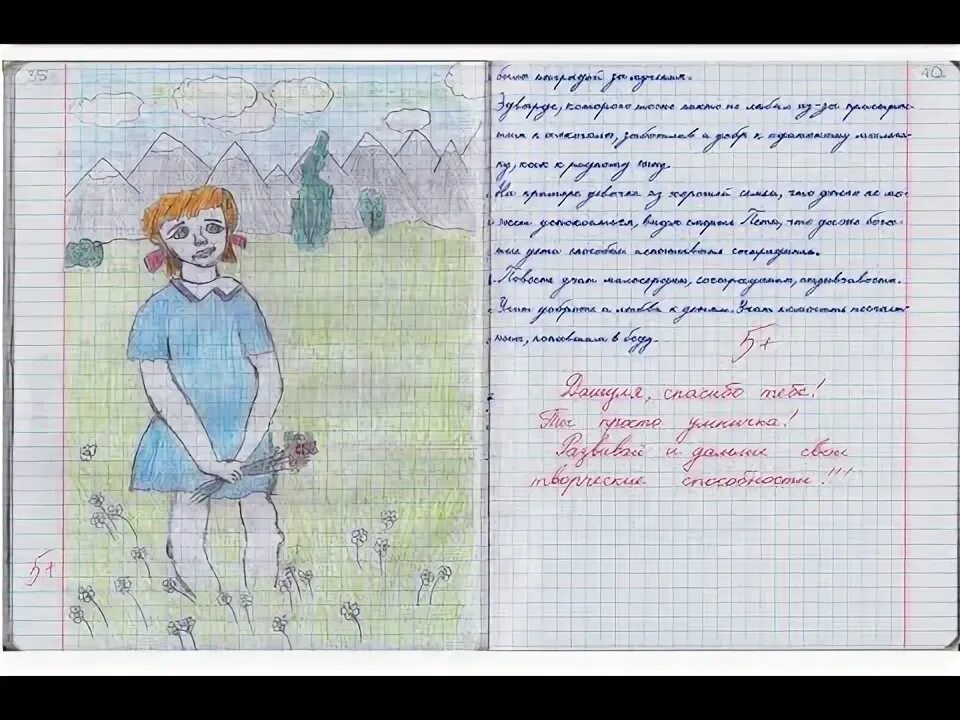 35
40
была наградой за лучения.
Эдварде, которого тоже никто не любил из-за пристрас-
тия к алкоголю, заботлив и добр к мальчи-
ку, как к родному сыну.
На примере девочки из хорошей семьи, что долго не мо-
жет успокоиться, видя Пети, что даже бога-
тые дети способны испытывать сострадание.
Повесть учит милосердию, состраданию, отзывчивости.
Учит доброте и любви к детям. Учит помогать
попавшим в беду.
5+
Дашуля, спасибо тебе!
Ты просто умничка!
Развивай и дальше свои
творческие способности!!!
5+